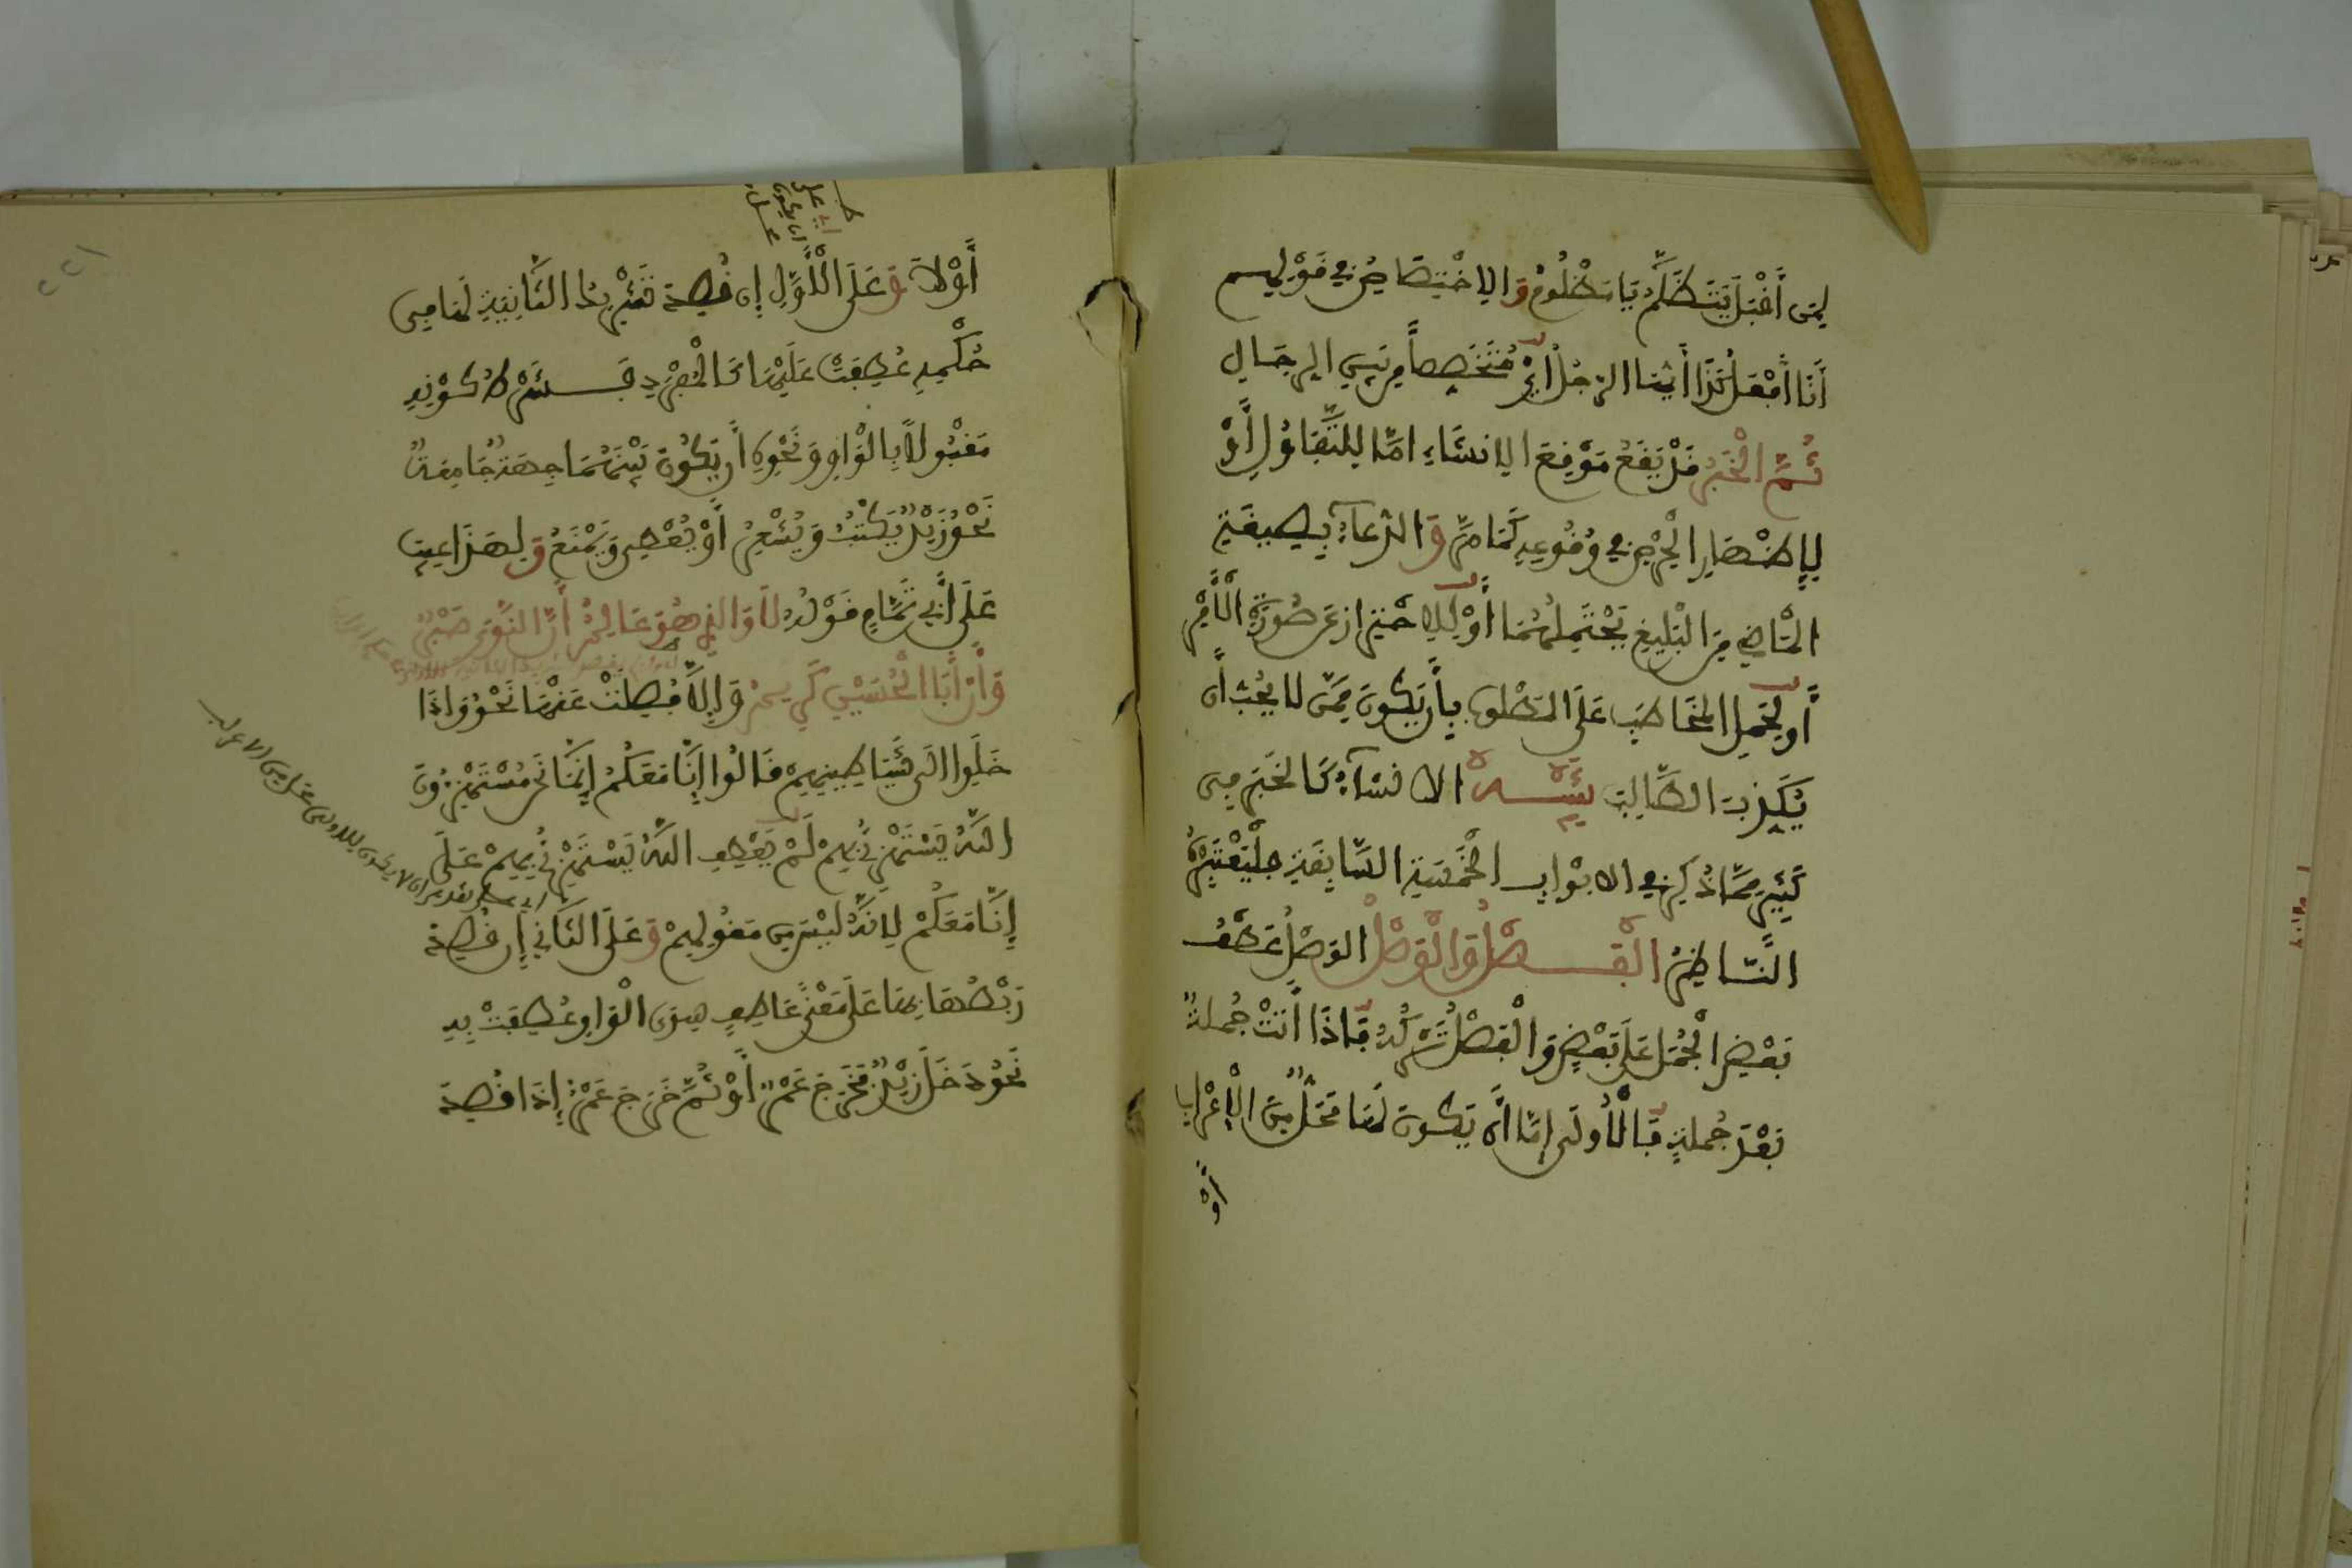 لِمَن أَقْبَلَ يَتَظَلَّمُ يَا مَظْلُومُ وَالِاخْتِصَاصُ فِي قَوْلِهِم
أَنَا أَفْعَلُ كَذَا أَيُّهَا الرَّجُلُ أَيْ مُتَخَصِّصاً مِن بَيْنِ الرِّجَالِ
ثُمَّ الْخَبَرُ قَدْ يَقَعُ مَوْقِعَ الِانشَاءِ امَّا لِلتَّفَاؤُلِ أَوْ
لِإِظْهَارِ الْحِرْصِ فِي وُقُوعِهِ كَمَا مَرَّ وَالدُّعَاءُ بِصِيغَةِ
الْمَاضِي مِنَ الْبَلِيغِ يَحْتَمِلُهُمَا أَوْ لِلِاحْتِرَازِ عَن صُورَةِ الْأَمْرِ
أَو لِحَمْلِ الْمُخَاطَبِ عَلَى المَطْلُوبِ بِأَن يَكُونَ مِمَّن لَا يُحِبُّ أَن
يُكَذَّبَ الطَّالِبُ تَنْبِيهٌ الانشَآءُ كَالْخَبَرِ فِي
كَثِيرٍ مِمَّا ذُكِرَ فِي الابْوَابِ الْخَمْسَةِ السَّابِقَةِ فَلْيَعْتَبِرْهُ
النَّاظِرُ الْفَصْلُ وَالْوَصْلُ الوَصْلُ عَطْفُ
بَعْضِ الْجُمَلِ عَلَى بَعْضٍ وَالْفَصْلُ تَرْكُهُ فَإِذَا أَتَتْ جُمْلَةٌ
بَعْدَ جُمْلَةٍ فَالْأُولَى إِمَّا أَن يَكُونَ لَهَا مَحَلٌّ مِّنَ الْإِعْرَابِ
أَوْ لَا وَعَلَى الْأَوَّلِ إِن قُصِدَ تَشْرِيكُ الثَّانِيَةِ لَهَا فِي
حُكْمِهِ عُطِفَتْ عَلَيْهَا كَالْمُفْرَدِ فَشَرْطُ كَوْنِهِ
مَقْبُولاً بِالْوَاوِ وَنَحْوِهِ أَن يَكُونَ بَيْنَهُمَا جِهَةٌ جَامِعَةٌ
نَحْوُ زَيْدٌ يَكْتُبُ وَيُشْعِرُ أَوْ يُعْطِي وَيَمْنَعُ وَلِهَذَا عِيبَ
عَلَى أَبِي تَمَّامٍ قَوْلُهُ لَا وَالَّذِي هُوَ عَالِمٌ أَنَّ النَّوَى صَبْرٌ
وَأَنَّ أَبَا الْحُسَيْنِ كَرِيمٌ وَإِلَّا فُصِلَتْ عَنْهَا نَحْوُ وَإِذَا
خَلَوْا الَى شَيَاطِينِهِمْ قَالُوا إِنَّا مَعَكُمْ إِنَّمَا نَحْنُ مُسْتَهْزِءُونَ
اللَّهُ يَسْتَهْزِئُ بِهِمْ لَمْ يُعْطَفِ اللَّهُ يَسْتَهْزِئُ بِهِمْ عَلَى
إِنَّا مَعَكُمْ لِأَنَّهُ لَيْسَ مِن مَقُولِهِمْ وَعَلَى الثَّانِي إِن قُصِدَ
رَبْطُهَا بِهَا عَلَى مَعْنَى عَاطِفٍ سِوَى الْوَاوِ عُطِفَتْ بِهِ
نَحْوُ دَخَلَ زَيْدٌ فَخَرَجَ عَمْرٌو أَوْ ثُمَّ خَرَجَ عَمْرٌو إِذَا قُصِدَ